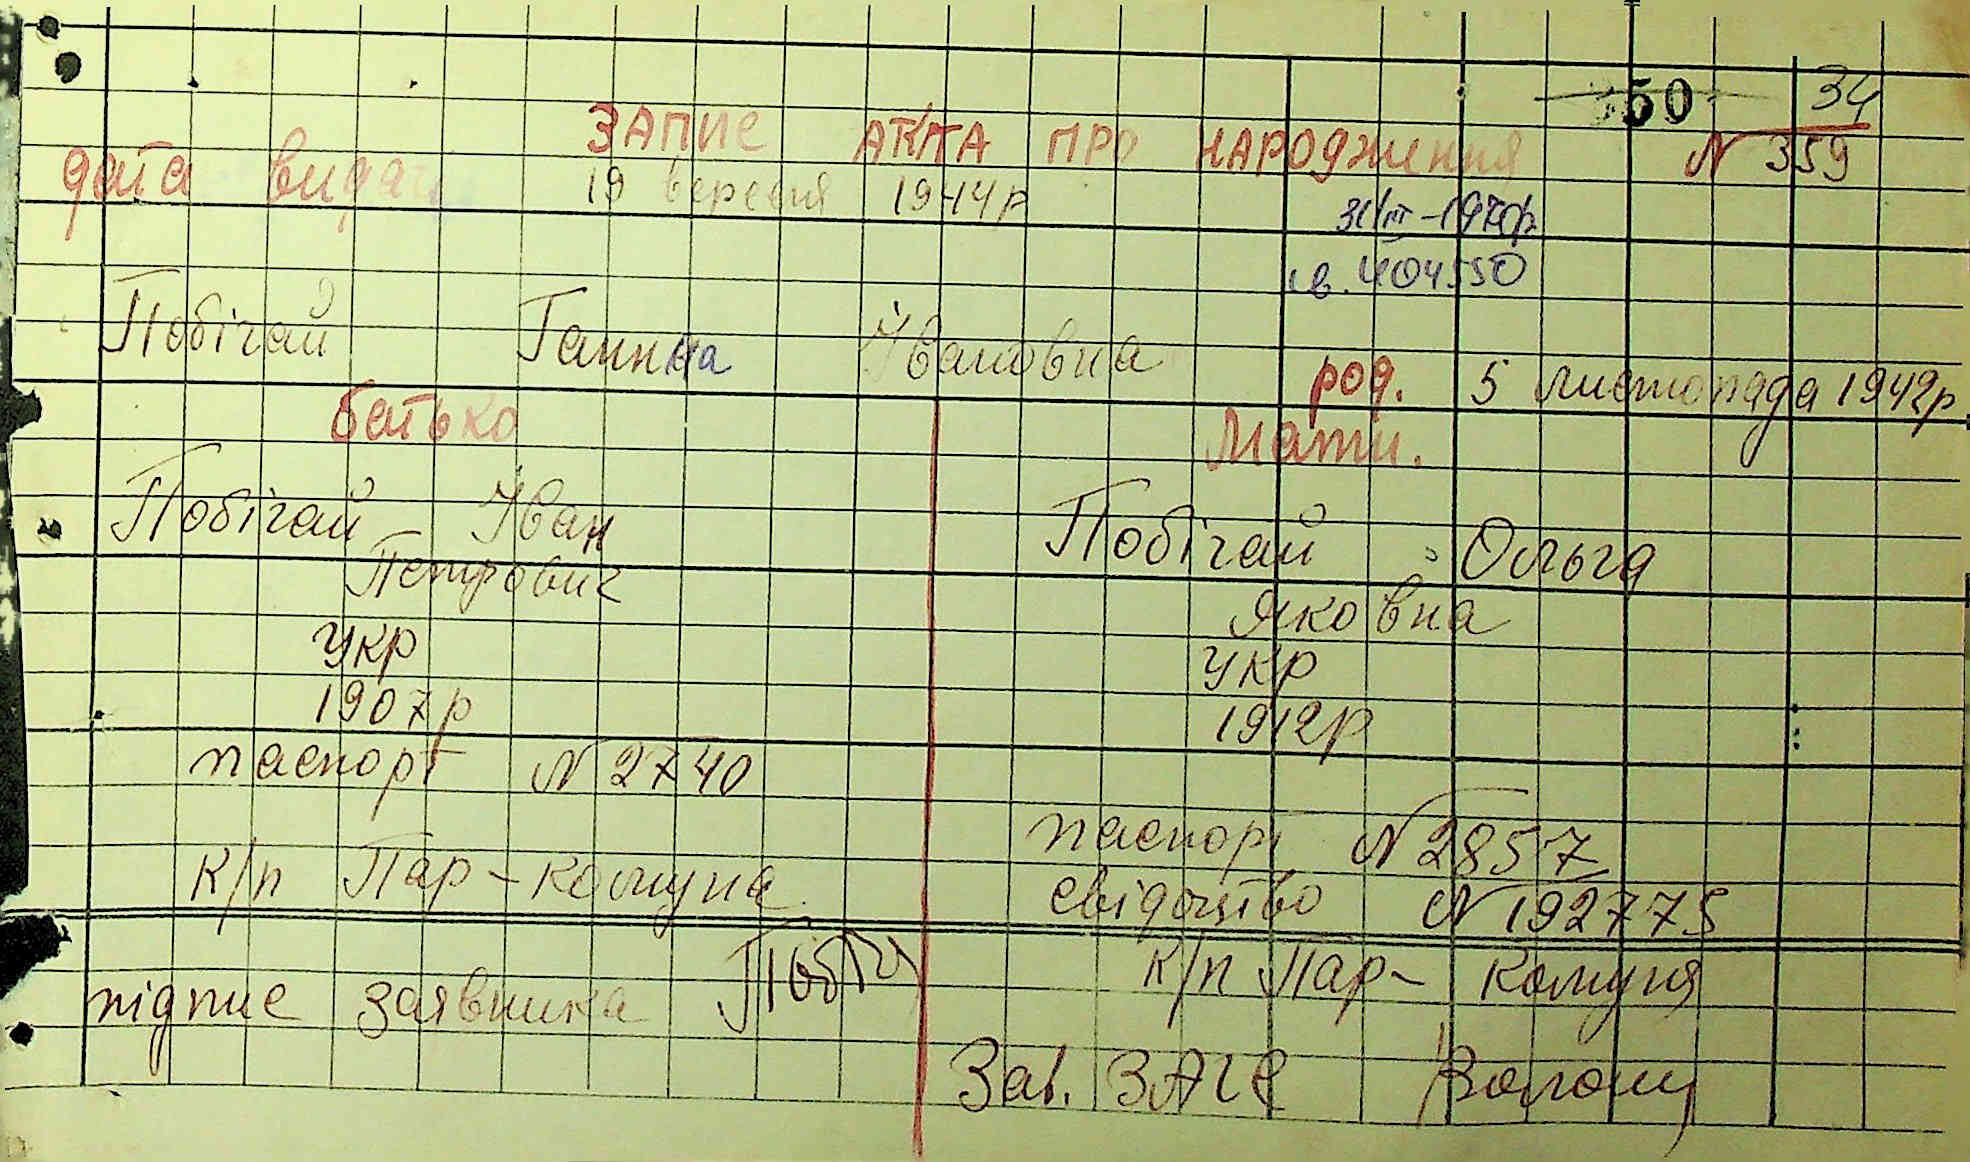 50 34
ЗАПИС АКТА ПРО НАРОДЖЕННЯ N 359
дата видачі 19 вересня 1944р
31/III-1970р.
св. 404550
Побігай Ганнна Івановна род. 5 листопада 1942р
батько Мати.
Побігай Іван Побігай Ольга
Петрович Яковна
укр укр
1907р 1912р
паспорт N 2740
паспорт N 2857
к/п Пар-комуна свідоцтво N 192775
підпис заявника к/п Пар-комуна
Зав. ЗАГС